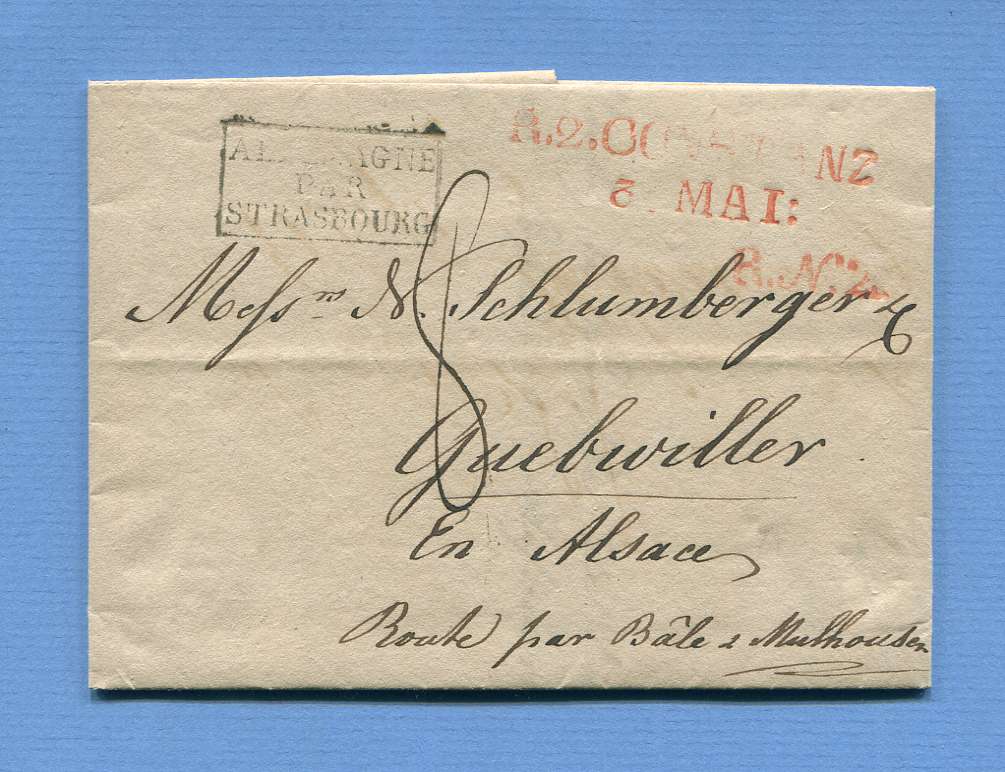 ALLEMAGNE
PAR
STRASBOURG
R.2.CONSTANZ
MAI:
R.N:
8
Messrs N. Schlumberger & C
Guebwiller
En Alsace
Route par Bâle & Mulhousen